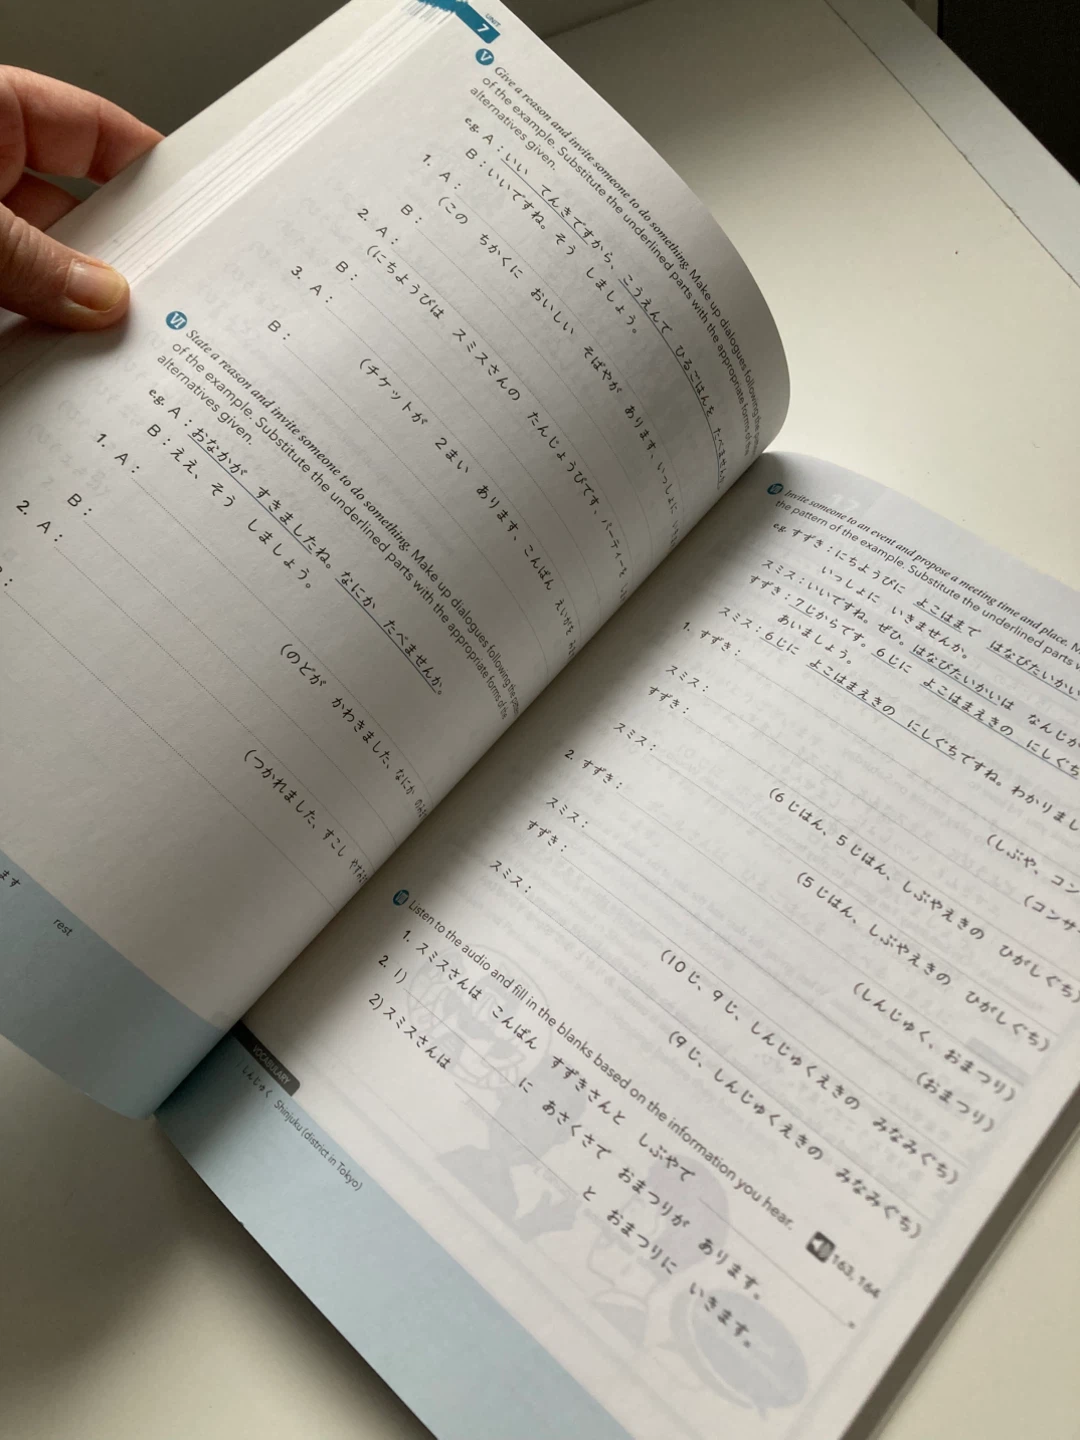 UNIT
7
V Give a reason and invite someone to do something. Make up dialogues following the
of the example. Substitute the underlined parts with the appropriate forms of the
alternatives given.
e.g. A：いい　てんきですから、こうえんで　ひるごはんを　たべません
B：いいですね。そう　しましょう。
1. A：
(この　ちかくに　おいしい　そばやが　あります、いっしょに
B：
2. A：
(にちようびは　スミスさんの　たんじょうびです、パーティーを
B：
3. A：
(チケットが　2まい　あります、こんばん　えいがを
B：
VI State a reason and invite someone to do something. Make up dialogues following the
of the example. Substitute the underlined parts with the appropriate forms of the
alternatives given.
e.g. A：おなかが　すきましたね。なにか　たべませんか。
B：ええ、そう　しましょう。
1. A：
(のどが　かわきました、なにか
B：
2. A：
(つかれました、すこし
：
ます
rest
VII Invite someone to an event and propose a meeting time and place.
the pattern of the example. Substitute the underlined parts
e.g. すずき：にちようびに　よこはまで　はなびたいかい
いっしょに　いきませんか。
スミス：いいですね。ぜひ。はなびたいかいは　なんじか
すずき：7じからです。6じに　よこはまえきの　にしぐち
あいましょう。
スミス：6じに　よこはまえきの　にしぐちですね。わかりまし
1. すずき：
(しぶや、コン
スミス：
(コンサー
すずき：
(6じはん、5じはん、しぶやえきの　ひがしぐち)
スミス：
(5じはん、しぶやえきの　ひがしぐち)
2. すずき：
(しんじゅく、おまつり)
スミス：
(おまつり)
すずき：
(10じ、9じ、しんじゅくえきの　みなみぐち)
スミス：
(9じ、しんじゅくえきの　みなみぐち)
VIII Listen to the audio and fill in the blanks based on the information you hear. 163, 164
1. スミスさんは　こんばん　すずきさんと　しぶやで 。
2. 1) に　あさくさで　おまつりが　あります。
2) スミスさんは と　おまつりに　いきます。
VOCABULARY
しんじゅく Shinjuku (district in Tokyo)